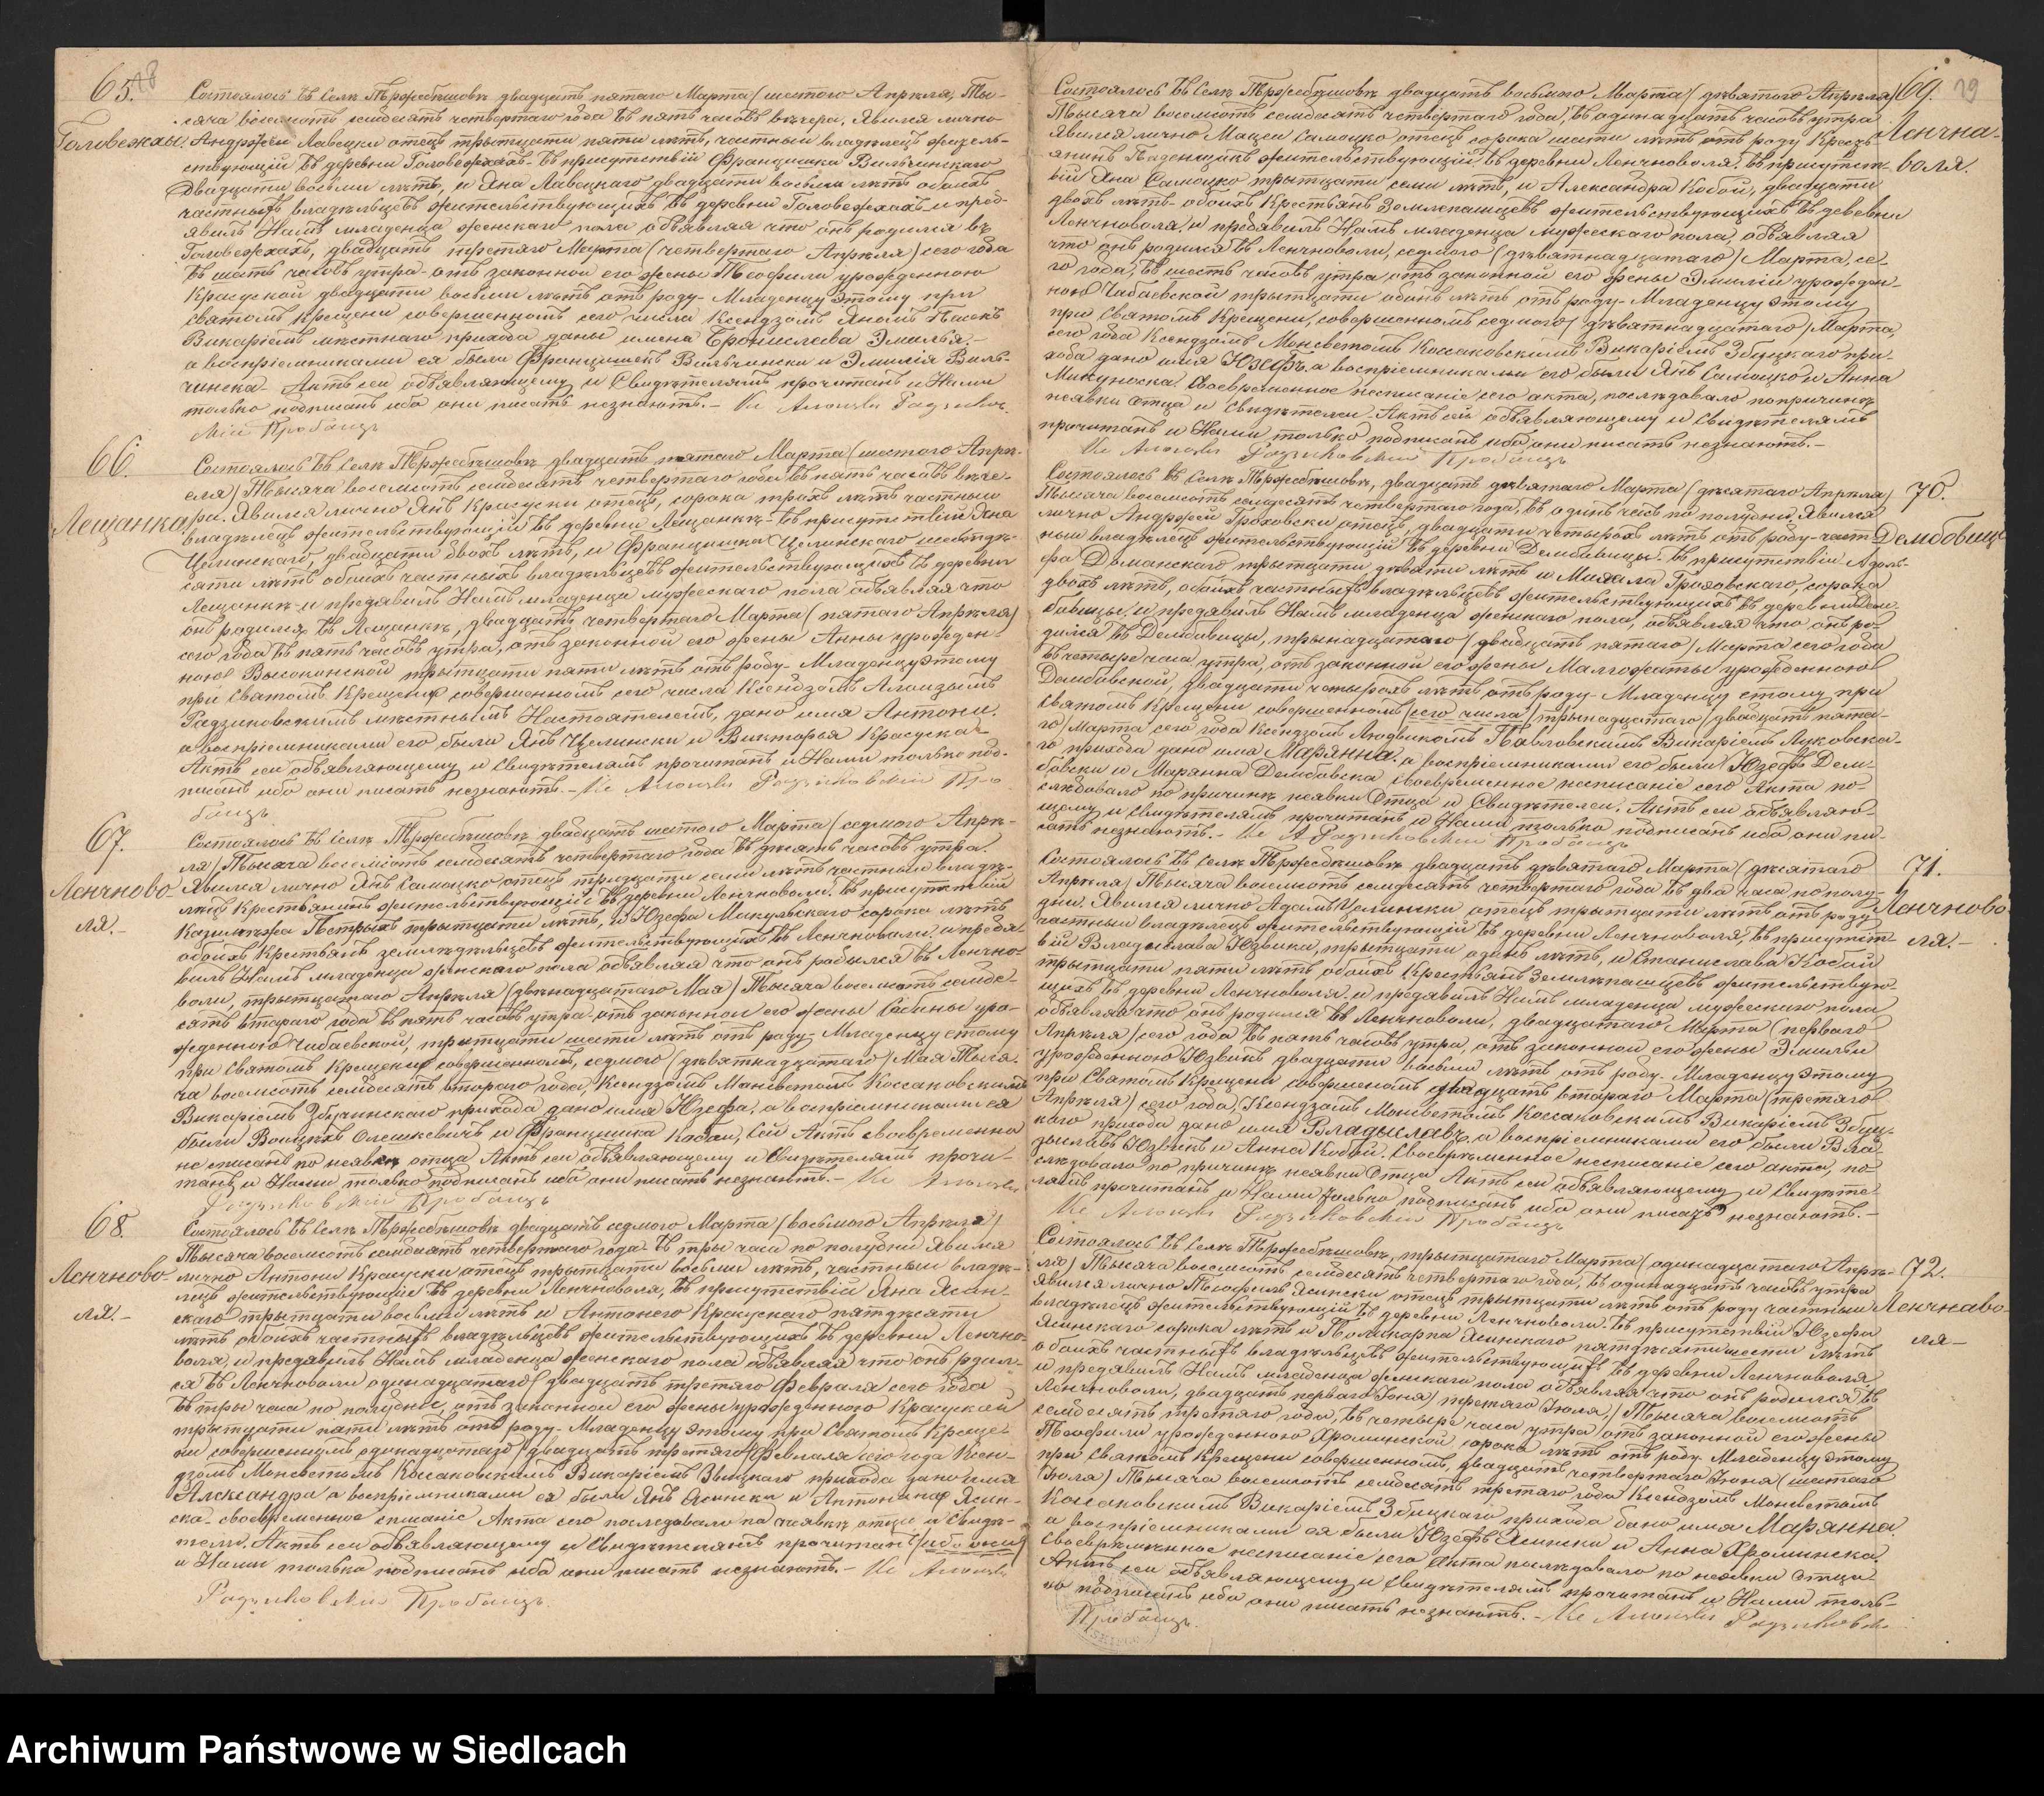 65.
Головежхы
Состоялось въ Селѣ Тржебѣшовѣ двадцать пятаго Марта (шестого Апрѣля, Ты-
сяча восемсотъ семдесятъ четвертаго года въ пять часовъ вѣчера. Явился лично
Андржей Лавецки отецъ трытцати пяти лѣтъ, частный владѣлецъ житель-
ствующій въ деревни Головежхахъ въ присутствіи Францишка Вильчинскаго
двадцати восьми лѣтъ, и Яна Лавецкаго двадцати восьми лѣтъ обоихъ
частныхъ владѣльцевъ жительствующихъ въ деревни Головежхахъ и пред-
явилъ Намъ младенца женскаго пола объявляя что онъ родился въ
Головежхахъ, двадцать третяго Марта (четвертаго Апрѣля) сего года
въ шесть часовъ утра отъ законной его жены Теофили урожденною
Красуской двадцати восьми лѣтъ отъ роду. Младенцу этому при
святомъ крещени совершенномъ сего числа Ксендзомъ Яномъ Пасекъ
Викаріемъ мѣстнаго прихода даны имена Бронислева Эмилья.-
а воспріемниками ея были Францишекъ Вильчински и Эмилія Виль-
чинска- Актъ сей объявляющему и Свидѣтелямъ прочитанъ и Нами
только подписанъ ибо они писать незнаютъ.-
66.
Лещанка
Состоялось въ Селѣ Тржебѣшовѣ двадцать пятаго Марта (шестого Апрѣ-
еля) Тысяча восемсотъ семдесятъ четвертаго года въ пять часовъ вѣче-
ра. Явился лично Янъ Красуски отецъ, сорока трохъ лѣтъ частный
владѣлецъ жительствующій въ деревни Лещанкѣ въ присутствіи Яна
Целинскаго, двадцати двохъ лѣтъ, и Францишка Целинскаго шестдѣ-
сяти лѣтъ обоихъ частныхъ владѣльцевъ жительствующихъ въ деревни
Лещанкѣ и предявилъ Намъ младенца мужескаго пола объявляя что
онъ родился въ Лещанкѣ, двадцать четвертаго Марта (пятаго Апрѣля)
сего года въ пять часовъ утра, отъ законной его жены Анны урожден-
ною Высокинской трытцати пяти лѣтъ отъ роду- Младенцу этому
при Святомъ Крещени совершенномъ сего числа Ксендзомъ Алоизымъ
Радзиковскимъ мѣстнымъ Настоятелемъ, дано имя Антони.
а воспріемниками его были Янъ Целински и Викторья Красуска-
Актъ сей объявляющему и Свидѣтелямъ прочитанъ и Нами только под-
писанъ ибо они писать незнаютъ.-
67.
Ленчново-
ля.-
Состоялось въ Селѣ Тржебѣшовѣ двадцать шестого Марта (седмого Апрѣ-
ля) Тысяча восемсотъ семдесятъ четвертаго года въ десять часовъ утра.
Явился лично Янъ Самоцко отецъ тридцати семи лѣтъ частный владѣ-
лецъ Крестьянинъ жительствующій въ деревни Ленчноволи, въ присутствіи
Казимѣжа Петрыкъ трытцати лѣтъ, и Юзефа Микульскаго сорока лѣтъ
обоихъ Крестьянъ земледѣльцевъ жительствующихъ въ Ленчноволи, и предя-
вилъ Намъ младенца женскаго пола объявляя что онъ родился въ Ленчно-
воли, трытцатаго Апрѣля (двѣнадцатаго Мая) Тысяча восемсотъ семде-
сятъ втораго года въ пять часовъ утра отъ законной его жены Сабины уро-
жденною Чабаевской, трытцати шести лѣтъ отъ роду- Младенцу этому
при Святомъ Крещени совершенномъ, седмого (девятнадцатаго) Мая Тыся-
ча восемсотъ семдесятъ втораго года, Ксендзомъ Мансветомъ Коссаковскимъ
Викаріемъ Збучинскаго прихода дано имя Юзефа. а воспріемниками ея
были Войцѣхъ Олешкевичъ и Францишка Кобаи, Сей Актъ своевременно
не списанъ по неявкѣ отца Актъ сей объявляющему и Свидѣтелямъ прочи-
танъ и Нами только подписанъ ибо они писать незнаютъ.-
68.
Ленчново-
ля.-
Состоялось въ Селѣ Тржебѣшовѣ двадцать седмого Марта (восьмого Апрѣля)
Тысяча восемсотъ семдесятъ четвертаго года въ тры часа по полудни Явился
лично Антони Красуски отецъ трытцати восьми лѣтъ, частный владѣ-
лецъ жительствующій въ деревни Ленчноволя, въ присутствіи Яна Ясин-
скаго трытцати восьми лѣтъ и Антонего Красускаго пятдѣсяти
лѣтъ обоихъ частныхъ владѣльцевъ жительствующихъ въ деревни Ленчно-
воля, и предявилъ Намъ младенца женскаго пола объявляя что онъ родил-
ся въ Ленчноволи одинадцатаго (двадцать третяго Февраля сего года
въ тры часа по полудни, отъ законной его жены урожденною Красуской
трытцати пяти лѣтъ отъ роду- Младенцу этому при Святомъ Креще-
ни совершенномъ одинадцатаго (двадцать третяго) Февраля сего года Ксен-
дзомъ Мансветомъ Коссаковскимъ Викаріемъ Збуцкаго прихода дано имя
Александра а воспріемниками ея были Янъ Ясински и Антонина Ясин-
ска- своевременное списаніе Акта сего последовало по неявкѣ отца и Свидѣ-
тели. Актъ сей объявляющему и Свидѣтелямъ прочитанъ (ибо они)
и Нами только подписанъ ибо они писать незнаютъ.-
69.
Ленчна-
воля.
Состоялось въ Селѣ Тржебѣшовѣ двадцать восьмого Марта (девятого Апрѣля)
Тысяча восемсотъ семдесятъ четвертаго года, въ одинадцать часовъ утра
Явился лично Мацеи Самоцко отецъ сорока шести лѣтъ отъ роду Кресть-
янинъ Поденщикъ жительствующій въ деревни Ленчноволя, въ присутст-
віи Яна Самоцко трытцати семи лѣтъ, и Александра Кобои, двадцати
двохъ лѣтъ обоихъ Крестьянъ Землепашцевъ жительствующихъ въ деревни
Ленчноволя, и предявилъ Намъ младенца мужескаго пола, объявляя
что онъ родился въ Ленчноволи, седмого (девятнадцатаго) Марта, се-
го года, въ шесть часовъ утра отъ законной его жены Эмиліи урожден-
ною Чабаевской трытцати одинъ лѣтъ отъ роду- Младенцу этому
при Святомъ Крещени, совершенномъ седмого (девятнадцатаго) Марта,
сего года Ксендзомъ Мансветомъ Коссаковскимъ Викаріемъ Збуцкаго при-
хода дано имя Юзефъ, а воспріемниками его были Янъ Самоцко и Анна
Микуноска Своевременное несписаніе сего акта, последовало по причинѣ
неявки Отца и Свидѣтелеи. Актъ сей объявляющему и Свидѣтелямъ
прочитанъ и Нами только подписанъ ибо они писать незнаютъ.-
70.
Дембовице
Состоялось въ Селѣ Тржебѣшовѣ, двадцать девятаго Марта (десятаго Апрѣля)
Тысяча восемсотъ семдесятъ четвертаго года, въ одинъ часъ по полудни. Явился
лично Андржей Гроховски отецъ, двадцати четырохъ лѣтъ отъ роду- част-
ный владѣлецъ жительствующій въ деревни Дембовицы. въ присутствіи Адоль-
фа Доманскаго трытцати девяти лѣтъ и Михала Гроховскаго, сорока
двохъ лѣтъ, обоихъ частныхъ владѣльцевъ жительствующихъ въ деревни Дем-
бовицы, и предявилъ Намъ младенца женскаго пола, объявляя что онъ ро-
дился въ Дембовицы, трынадцатаго (двадцать пятаго) Марта сего года
въ четыре часа утра, отъ законной его жены Малгожаты урожденною
Дембовской, двадцати четырохъ лѣтъ отъ роду- Младенцу етому при
Святомъ Крещени совершенномъ (сего числа) трынадцатаго (двадцать пята-
го) Марта сего года Ксендзомъ Людвикомъ Павловскимъ Викаріемъ Луковска-
го прихода дано имя Марянна. а воспріемниками его были Юзефъ Дем-
бовски и Марянна Дембовска Своевременное несписаніе сего Акта по-
следовало по причинѣ неявки Отца и Свидѣтелеи. Актъ сей объявляю-
щему и Свидѣтелямъ прочитанъ и Нами только подписанъ ибо они пи-
сать незнаютъ.-
71.
Ленчново-
ля.-
Состоялось въ Селѣ Тржебѣшовѣ двадцать девятаго Марта (десятаго
Апрѣля) Тысяча восемсотъ семдесятъ четвертаго года въ два часа по полу-
дни. Явился лично Адамъ Целински отецъ трытцати лѣтъ отъ роду
частный владѣлецъ жительствующій въ деревни Ленчноволя, въ присутст-
віи Владислава Юзвики, трытцати одинъ лѣтъ, и Станислава Кобаи
трытцати пяти лѣтъ обоихъ Крестьянъ Землепашцевъ жительствую-
щихъ въ деревни Ленчноволя, и предявилъ Намъ младенца мужескаго пола
объявляя что онъ родился въ Ленчноволи, двадцатаго Марта (перваго
Апрѣля) сего года въ пять часовъ утра, отъ законной его жены Эмильи
урожденною Юзвикъ двадцати восьми лѣтъ отъ роду- Младенцу этому
при Святомъ Крещени совершеномъ двадцать втораго Марта (третяго
Апрѣля) сего года, Ксендзомъ Мансветомъ Коссаковскимъ Викаріемъ Збуц-
каго прихода дано имя Владыславъ, а воспріемниками его были Вла-
дыславъ Юзвикъ и Анна Кобои. Своевременное несписаніе сего акта, по-
следовало по причинѣ неявки Отца Актъ сей объявляющему и Свидѣте-
лямъ прочитанъ и Нами только подписанъ ибо они писать незнаютъ.-
72.
Ленчново-
ля-
Состоялось въ Селѣ Тржебѣшовѣ, трытцатаго Марта (одинадцатаго Апрѣ-
ля) Тысяча восемсотъ семдесятъ четвертаго года, въ одинадцать часовъ утра
Явился лично Теофилъ Ясински отецъ трытцати лѣтъ отъ роду частный
владѣлецъ жительствующій въ деревни Ленчноволи. въ присутствіи Юзефа
Ясинскаго сорока лѣтъ и Поликарпа Ясинскаго пятдѣсятишести лѣтъ
обоихъ частныхъ владѣльцевъ жительствующихъ въ деревни Ленчноволя,
и предявилъ Намъ младенца женскаго пола объявляя что онъ родился въ
Ленчноволи, двадцать перваго Іюня) третяго Іюля,) Тысяча восемсотъ
семдесятъ третяго года, въ четыре часа утра отъ законной его жены
Теофили урожденною Хроминской сорока лѣтъ отъ роду- Младенцу этому
при Святомъ Крещени совершенномъ, двадцать четвертаго Іюня (шестаго
Іюля) Тысяча восемсотъ семдесятъ третяго года Ксендзомъ Мансветомъ
Коссаковскимъ Викаріемъ Збуцкаго прихода дано имя Марянна.
а воспріемниками ея были Юзефъ Ясински и Анна Хроминска.
Своевременное несписаніе сего Акта последовало по неявки Отца-
Актъ сей объявляющему и Свидѣтелямъ прочитанъ и Нами толь-
ко подписанъ ибо они писать незнаютъ.-
Archiwum Państwowe w Siedlcach